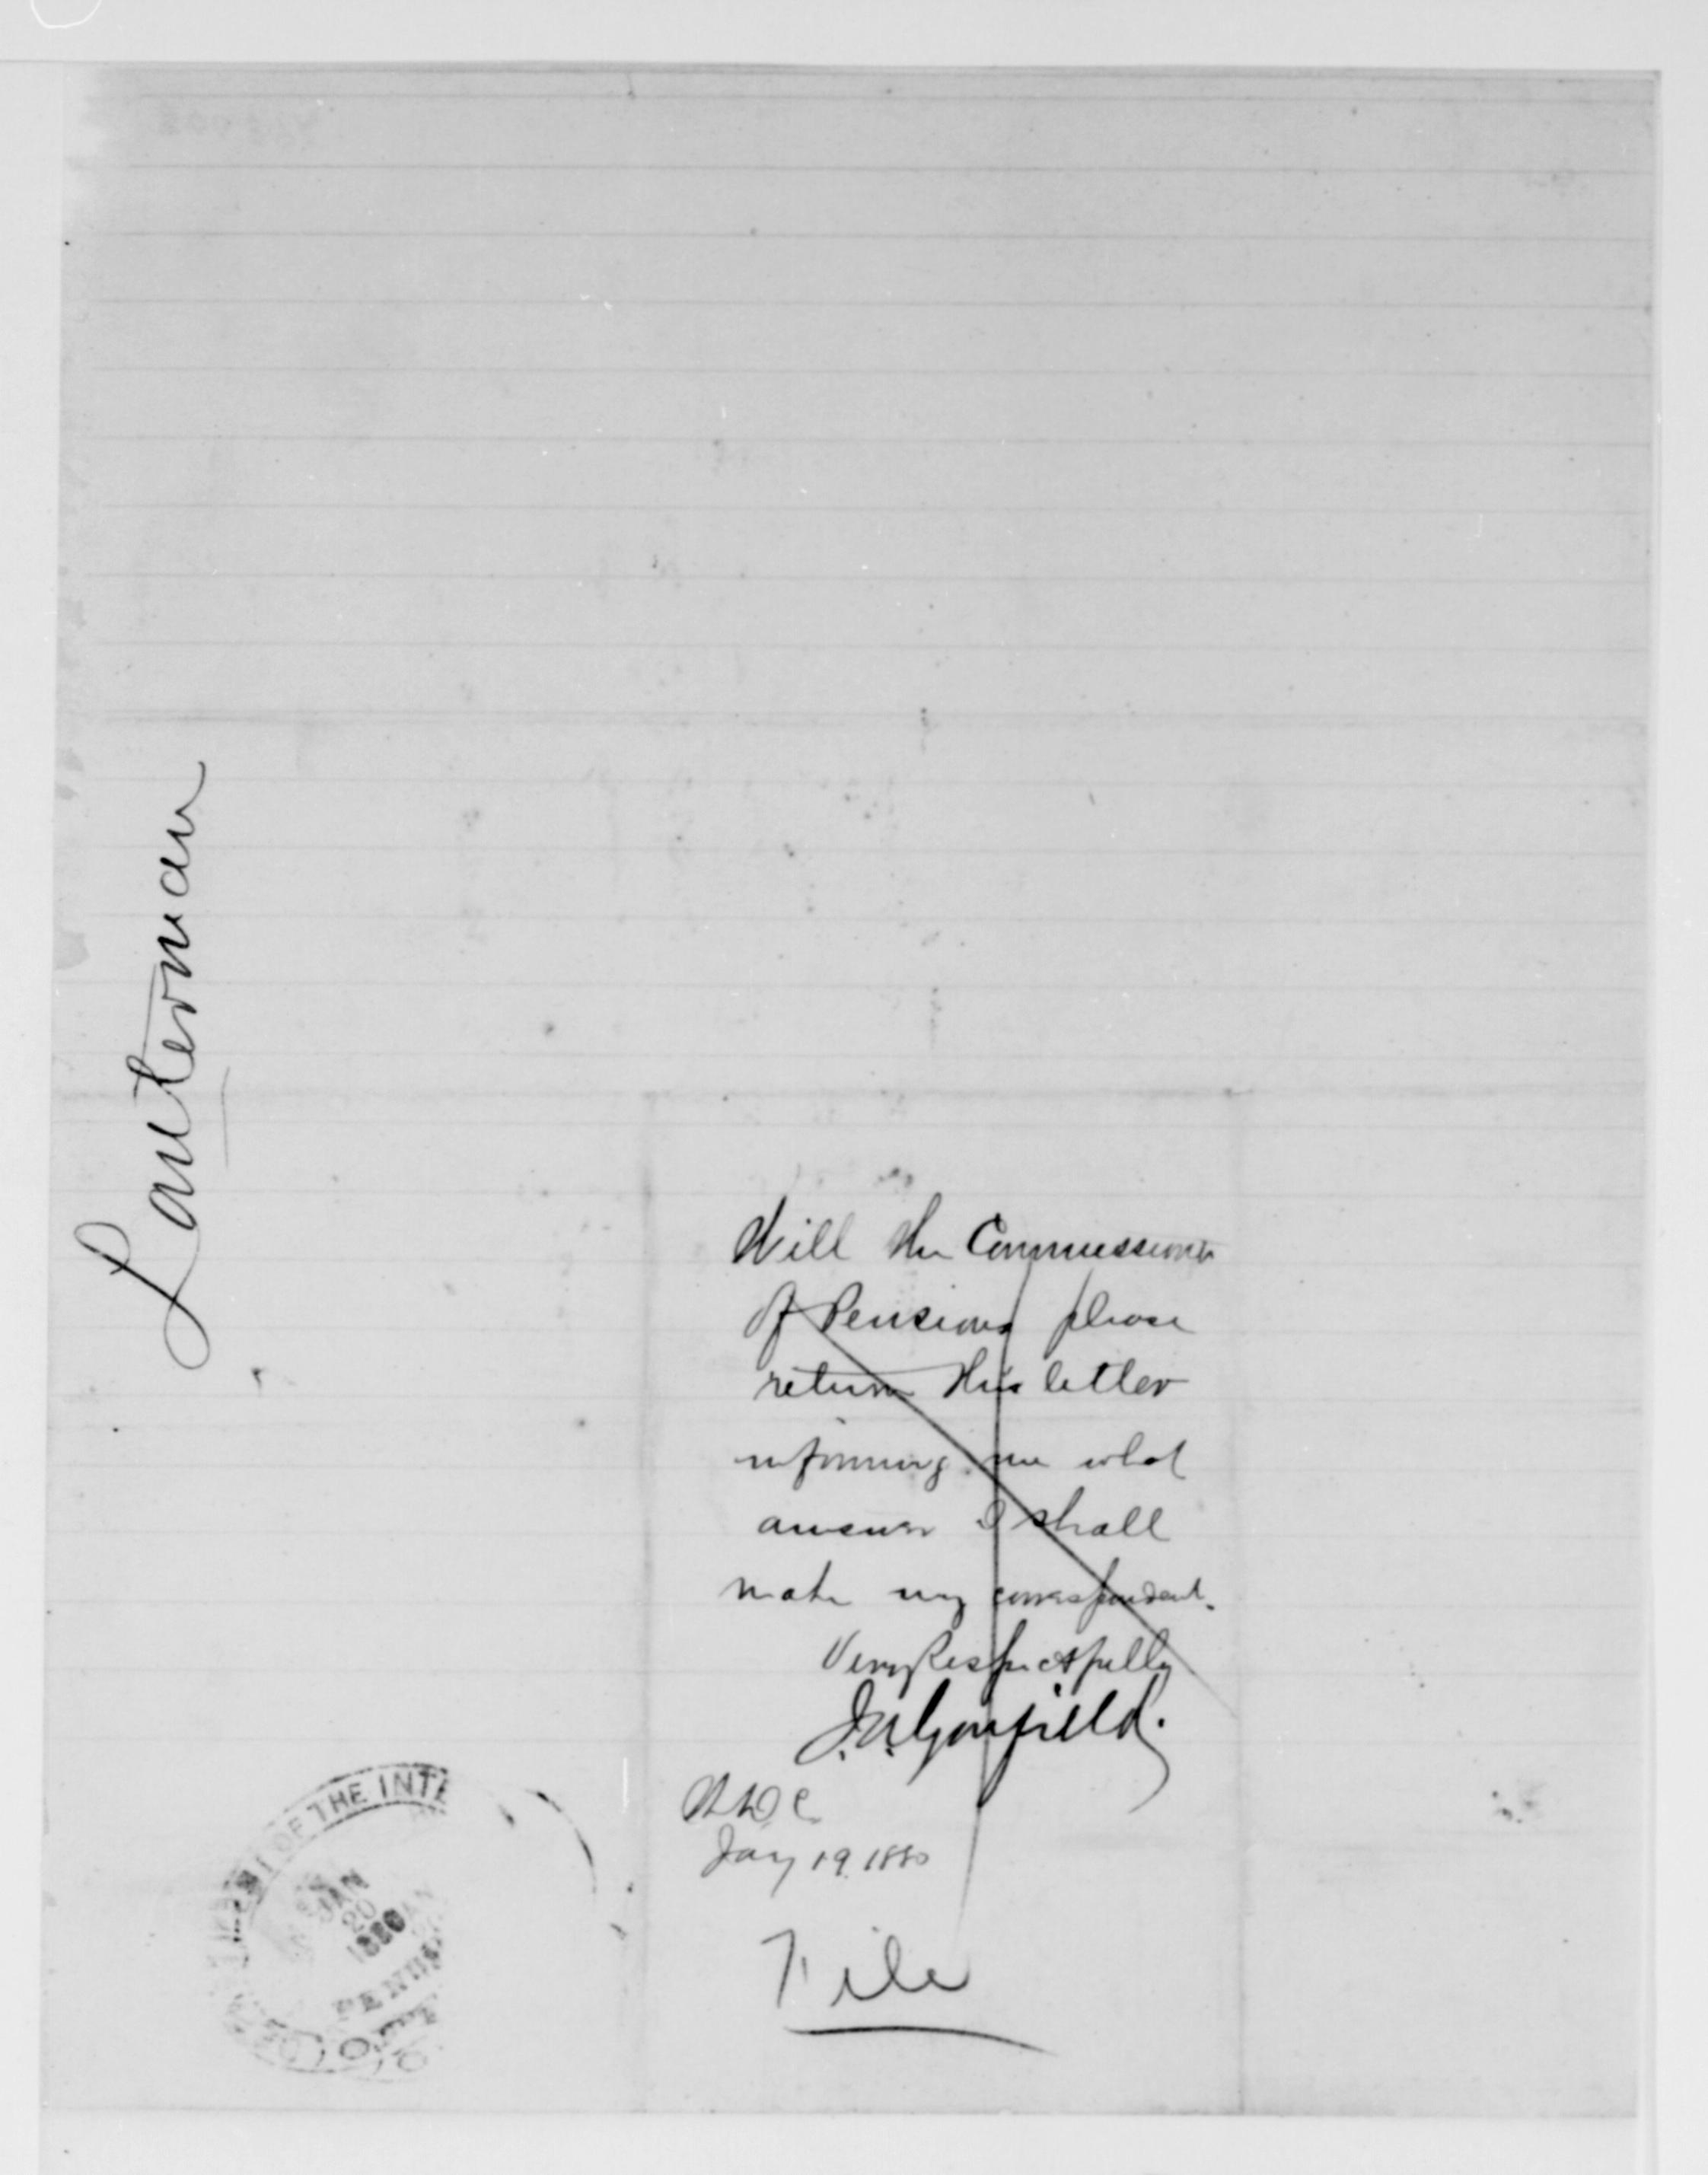 Lauterman
Will the Commissioner
of Pensions please
return this letter
informing me what
answer I shall
make my correspondent.
Very Respectfully
J.A. Garfield.
Jany 19. 1880
File
OF THE INTE
JAN
20
1880
PENSI